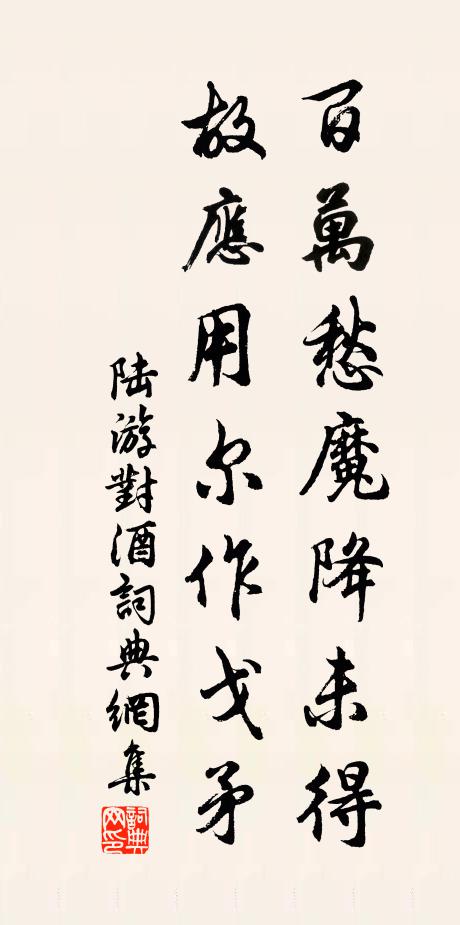 百萬愁魔降未得
故應用尔作戈矛
陆游對酒詞典網集
詞典網印